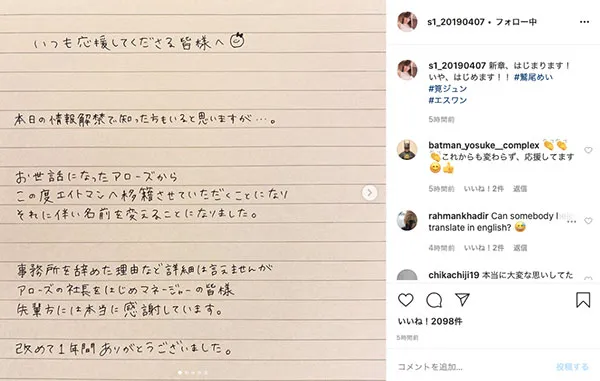 いつも応援してくださる皆様へ
本日の情報解禁で、知った方もいると思いますが…。
お世話になったアローズから
この度エイトマンへ移籍させていただくことになり
それに伴い名前を変えることになりました。
事務所を辞めた理由など詳細は言えませんが
アローズの社長をはじめマネージャーの皆様
先輩方には本当に感謝しています。
改めて1年間ありがとうございました。
s1_20190407 • フォロー中
s1_20190407 新章、はじまります!
いや、はじめます!! #鷲尾めい
#筧ジュン
#エスワン
5時間前
batman_yosuke__complex 👏👏
👏これからも変わらず、応援してます
😄👍
5時間前 いいね!2件 返信
rahmankhadir Can somebody
translate in english? 😅
4時間前 いいね!2件 返信
chikachiji19 本当に大変な思いしてた
いいね!2098件
5時間前
コメントを追加... 投稿する